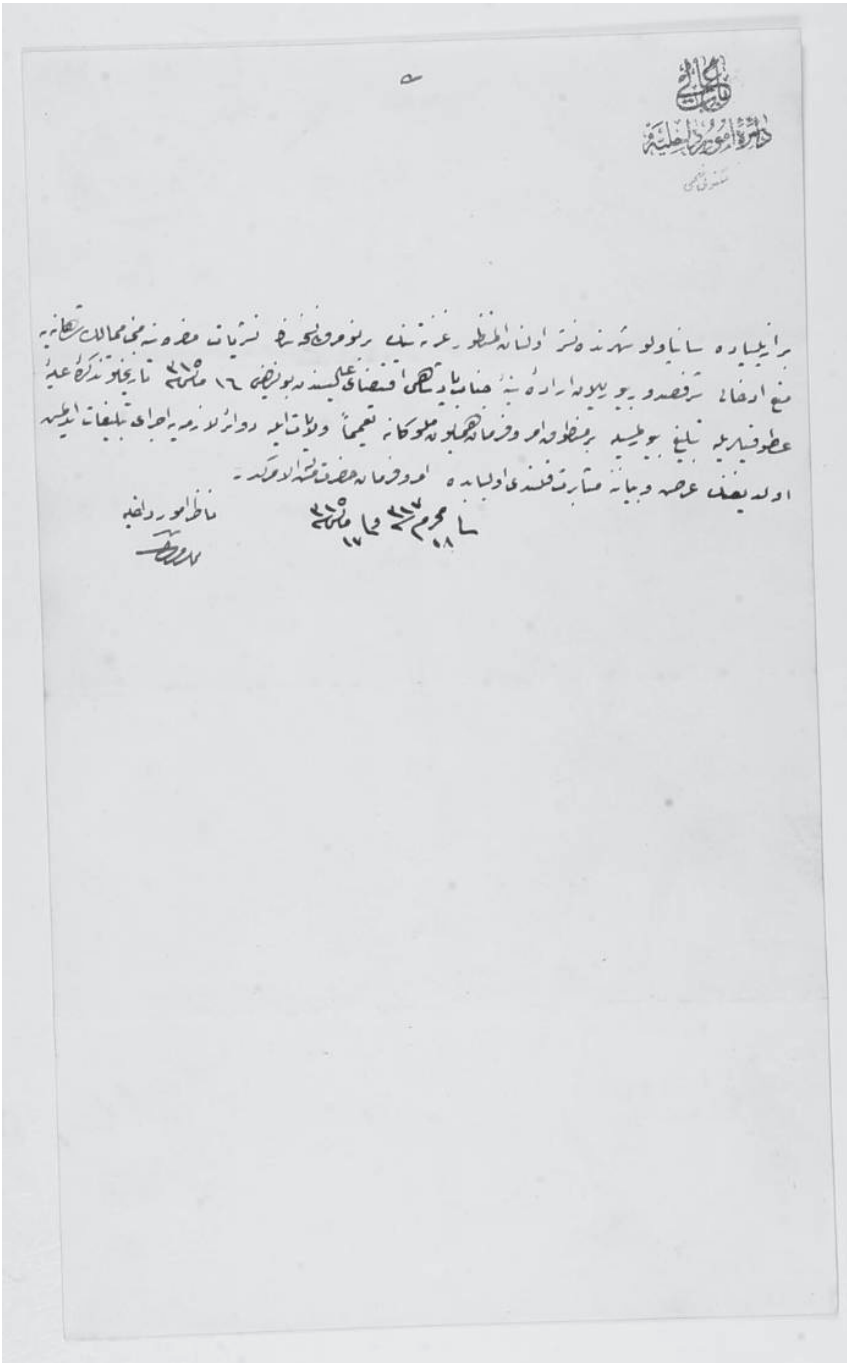 باب عالی
دائرهٔ امور داخلیه
برازیلیاده سان پاولو شهرنده نشر اولنان المنظور غزته سنك بر نومرولی نسخه سنك نشریات مضره سنه مبنی ممالك شاهانه یه
منع ادخالی شرفصدور بیوریلان ارادهٔ سنیهٔ جناب پادشاهی اقتضای عالیسندن بولندیغی ١٦ مارت ٣١٥ تاریخلو تذکرهٔ علیهٔ
عطوفتلریله تبلیغ بیورلمسیله بر منطوق امر و فرمان همایون ملوکانه تعمیماً ولایات ایله دوائر لازمه یه اجرای تبلیغات ایدلمش
اولدیغنك عرض و بیاننه مبادرت قلندی اولبابده امر و فرمان حضرت من له الامرکدر
فی ١٨ محرم ٣١٧ و فی ١٧ مارت ٣١٥
ناظر امور داخلیه